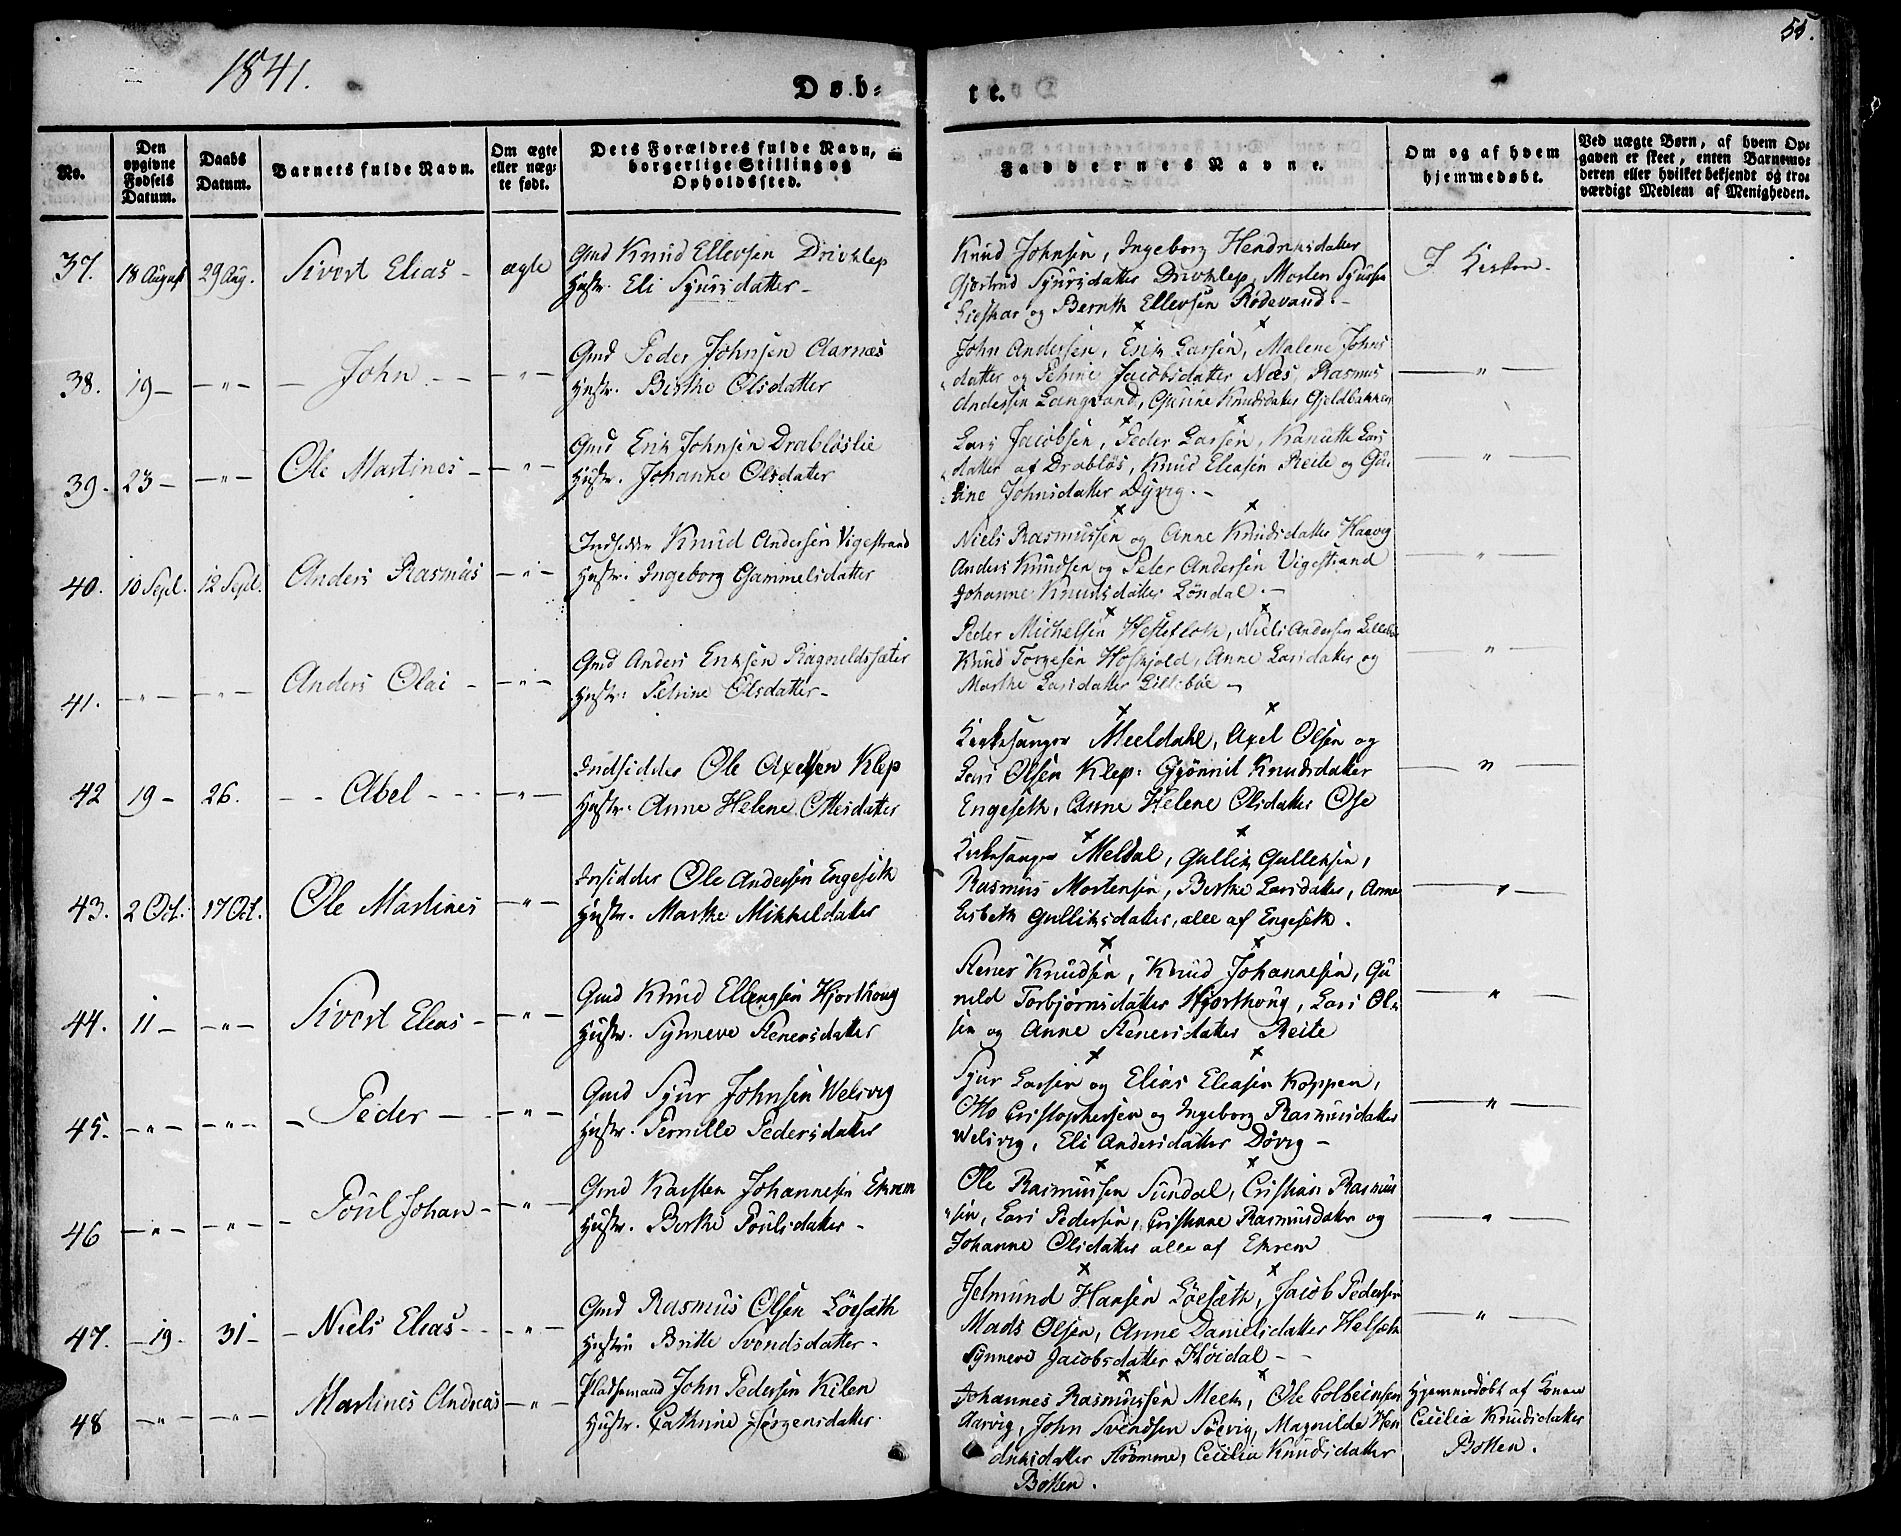 1841.
55.
Døb-
te.
No.
Den opgivne Fødsels Datum.
Daabs Datum.
Barnets fulde Navn.
Om ægte eller uæg- te født.
Dets Forældres fulde Navn, borgerlige Stilling og Opholdssted.
Faddernes Navne.
Om og af hvem hjemmedøbt.
Ved uægte Børn, af hvem Op- gaven er skeet, enten Barnemo- deren eller hvilket bekjendt og tro- værdigt Medlem af Menigheden.
37. 18 August 29 Aug. Sivert Elias - ægte
Gmd Knud Ellevsen Drivklep
Hustr. Eli Syursdatter -
Knud Johnsen, Ingeborg Hendriksdatter
Gjertrud Syursdatter Drivklep, Morten Syursen
Lieskar og Bernth Ellevsen Rødevand. -
I Kirken.
38. 19 - - " - - John - - - " -
Gmd Peder Johnsen Aarnæs
Hustr. Birthe Olsdatter
John Andersen, Erik Larsen, Malene Johns
datter og Petrine Jacobsdatter Næs, Rasmus
Andersen Langvand, Gurine Knudsdatter Gjeldbakken
- " -
39. 23 - - " - Ole Martines - - " -
Gmd Erik Johnsen Drabløslie
Hustr. Johanne Olsdatter
Lars Jacobsen, Peder Larsen, Kanutte Lars
datter af Drabløs, Knud Eleasen Reite og Gu-
rine Johnsdatter Dyvig. -
- " -
40. 10 Sept. 12 Sept. Anders Rasmus - " -
Indsidder Knud Andersen Vigestrand
Hustr. Ingeborg Gammelsdatter
Niels Rasmussen og Anne Knudsdatter Haavig
Anders Knudsen og Peter Andersen Vigestrand
Johanne Knudsdatter Løndal. -
- " -
41. - " - - " - Anders Olai - - " -
Gmd Anders Eriksen Ragnildssæter
Hustr. Petrine Olsdatter -
Peder Michelsen Hesteflot, Niels Andersen Lillebø
Knud Torgesen Hoskjold, Anne Larsdatter og
Marthe Larsdatter Lillebøe -
- " -
42 19 - 26. - - Abel - - - - " -
Indsidder Ole Axelsen Klep
Hustr. Anne Helene Ottersdatter
Kirkesanger Meeldahl, Axel Olsen og
Lars Olsen Klep. Gjønnil Knudsdatter
Engeseth, Anne Helene Olsdatter Ose
- " -
43. 2 Oct. 17 Oct. Ole Martines - " -
Insidder Ole Andersen Engeseth
Hustr. Marthe Mikkeldatter
Kirkesanger Meldal, Gullik Gulleksen,
Rasmus Mortensen, Berthe Larsdatter, Anne
Lisbeth Gulliksdatter, alle af Engeseth.
- " -
44. 11 - - " - Sivert Elias - - " -
Gmd Knud Ellingsen Hjorthoug
Hustr. Synneve Stenersdatter
Stener Knudsen, Knud Johannesen, Gu
nild Torbjørnsdatter Hjorthoug, Lars Ol-
sen og Anne Stenersdatter Reite
- " -
45. - " - - " - - Peder - - " -
Gmd Syur Johnsen Welsvig
Hustr. Pernille Pedersdatter
Syur Larsen og Elias Eleasen Koppen,
Otto Cristophersen og Ingeborg Rasmusdatter
Welsvig, Eli Andersdatter Døvig -
- " -
46 - " - - " - - Poul Johan - - " -
Gmd Karsten Johannesen Ekrem
Hustr. Berthe Poulsdatter -
Ole Rasmussen Sundal, Cristian Rasmus
sen, Lars Pedersen, Cristianne Rasmusdatter og
Johanne Olsdatter alle af Ekrem
- " -
47. - 19. 31 - - Niels Elias - - - " -
Gmd Rasmus Olsen Løesæth
Hustru Britte Svendsdatter -
Jelmund Hansen Løesæth, Jacob Pedersen
Mads Olsen, Anne Danielsdatter Helsæth
Synneve Jacobsdatter Høidal - -
- " -
48 - " - - " - Martines Andreas - " -
Pladsmand John Pedersen Kilen
Hustr. Cathrine Jørgensdatter.
Johannes Rasmussen Meek, Ole Colbeinsen
Aarvig, John Svendsen Søevig, Magnilde Hen
driksdatter Strømme, Cecilia Knudsdatter
Botten.
Hjemmedøbt af Konen
Cecilia Knudsdatter
Botten.